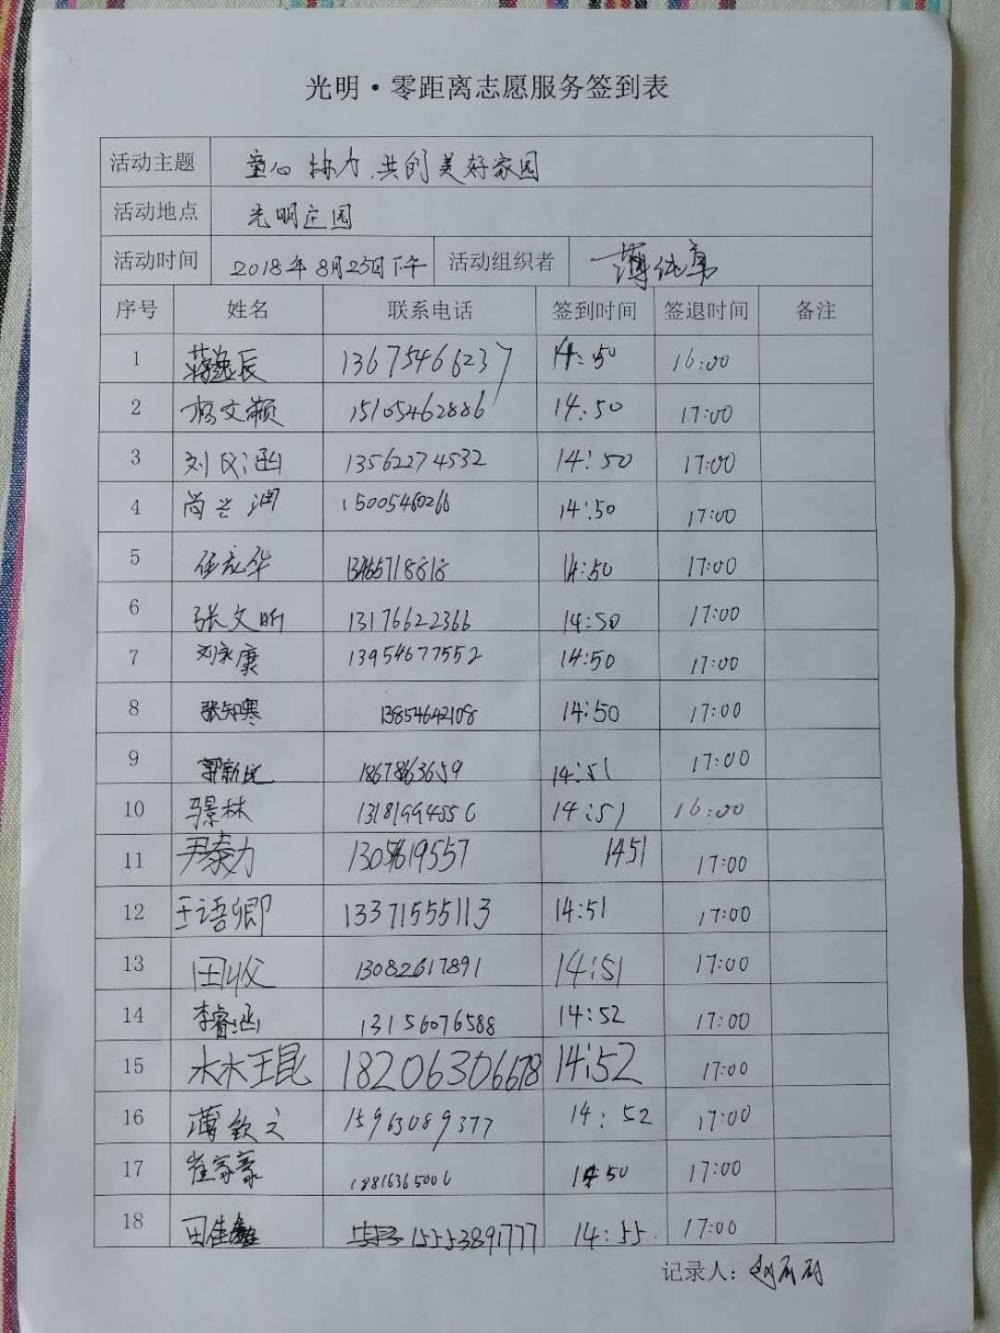 光明·零距离志愿服务签到表
活动主题 童心协力,共创美好家园
活动地点 光明庄园
活动时间 2018年8月25日下午 活动组织者
序号 姓名 联系电话 签到时间 签退时间 备注
1 蒋逸辰 13675466237 14:50 16:00
2 杨文颖 15105462886 14:50 17:00
3 刘汶涵 13562274532 14:50 17:00
4 尚兰润 15005460266 14:50 17:00
5 14:50 17:00
6 张文昕 13176622366 14:50 17:00
7 刘永康 13954677552 14:50 17:00
8 张知寒 13854642108 14:50 17:00
9 郭新悦 18678663659 14:51 17:00
10 马景林 13181994556 14:51 16:00
11 尹泰力 1451 17:00
12 王语卿 13371555113 14:51 17:00
13 田收 13082617891 14:51 17:00
14 李睿涵 13156076588 14:52 17:00
15 林琨 18206306678 14:52 17:00
16 薄钦之 15963089377 14:52 17:00
17 崔家豪 18816365006 14:50 17:00
18 田佳鑫 15553891777 14:55 17:00
记录人: